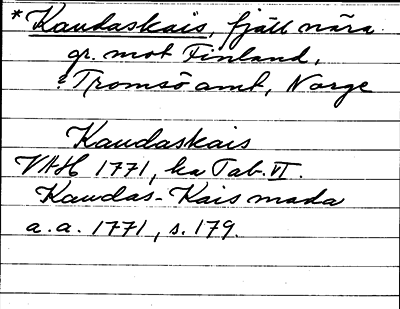 *Kaudaskais, fjäll nära
gr. mot Finland,
? Tromsö amt, Norge
Kaudaskais
VAH 1771, ka Tab. VI.
Kaudas-Kais mada
a.a. 1771, s. 179.